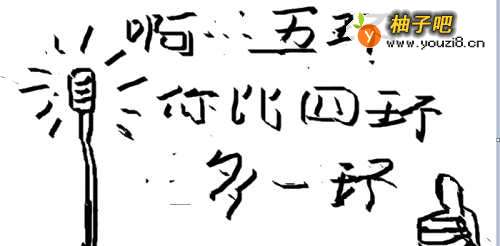 啊…五环
你比四环
…多一环
柚子吧
www.youzi8.cn